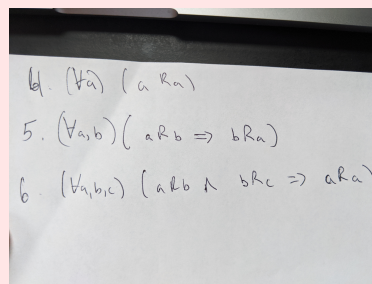 4. (∀a) (a R a)
5. (∀a,b) (aRb ⇒ bRa)
6 (∀a,b,c) (aRb ∧ bRc ⇒ aRa)